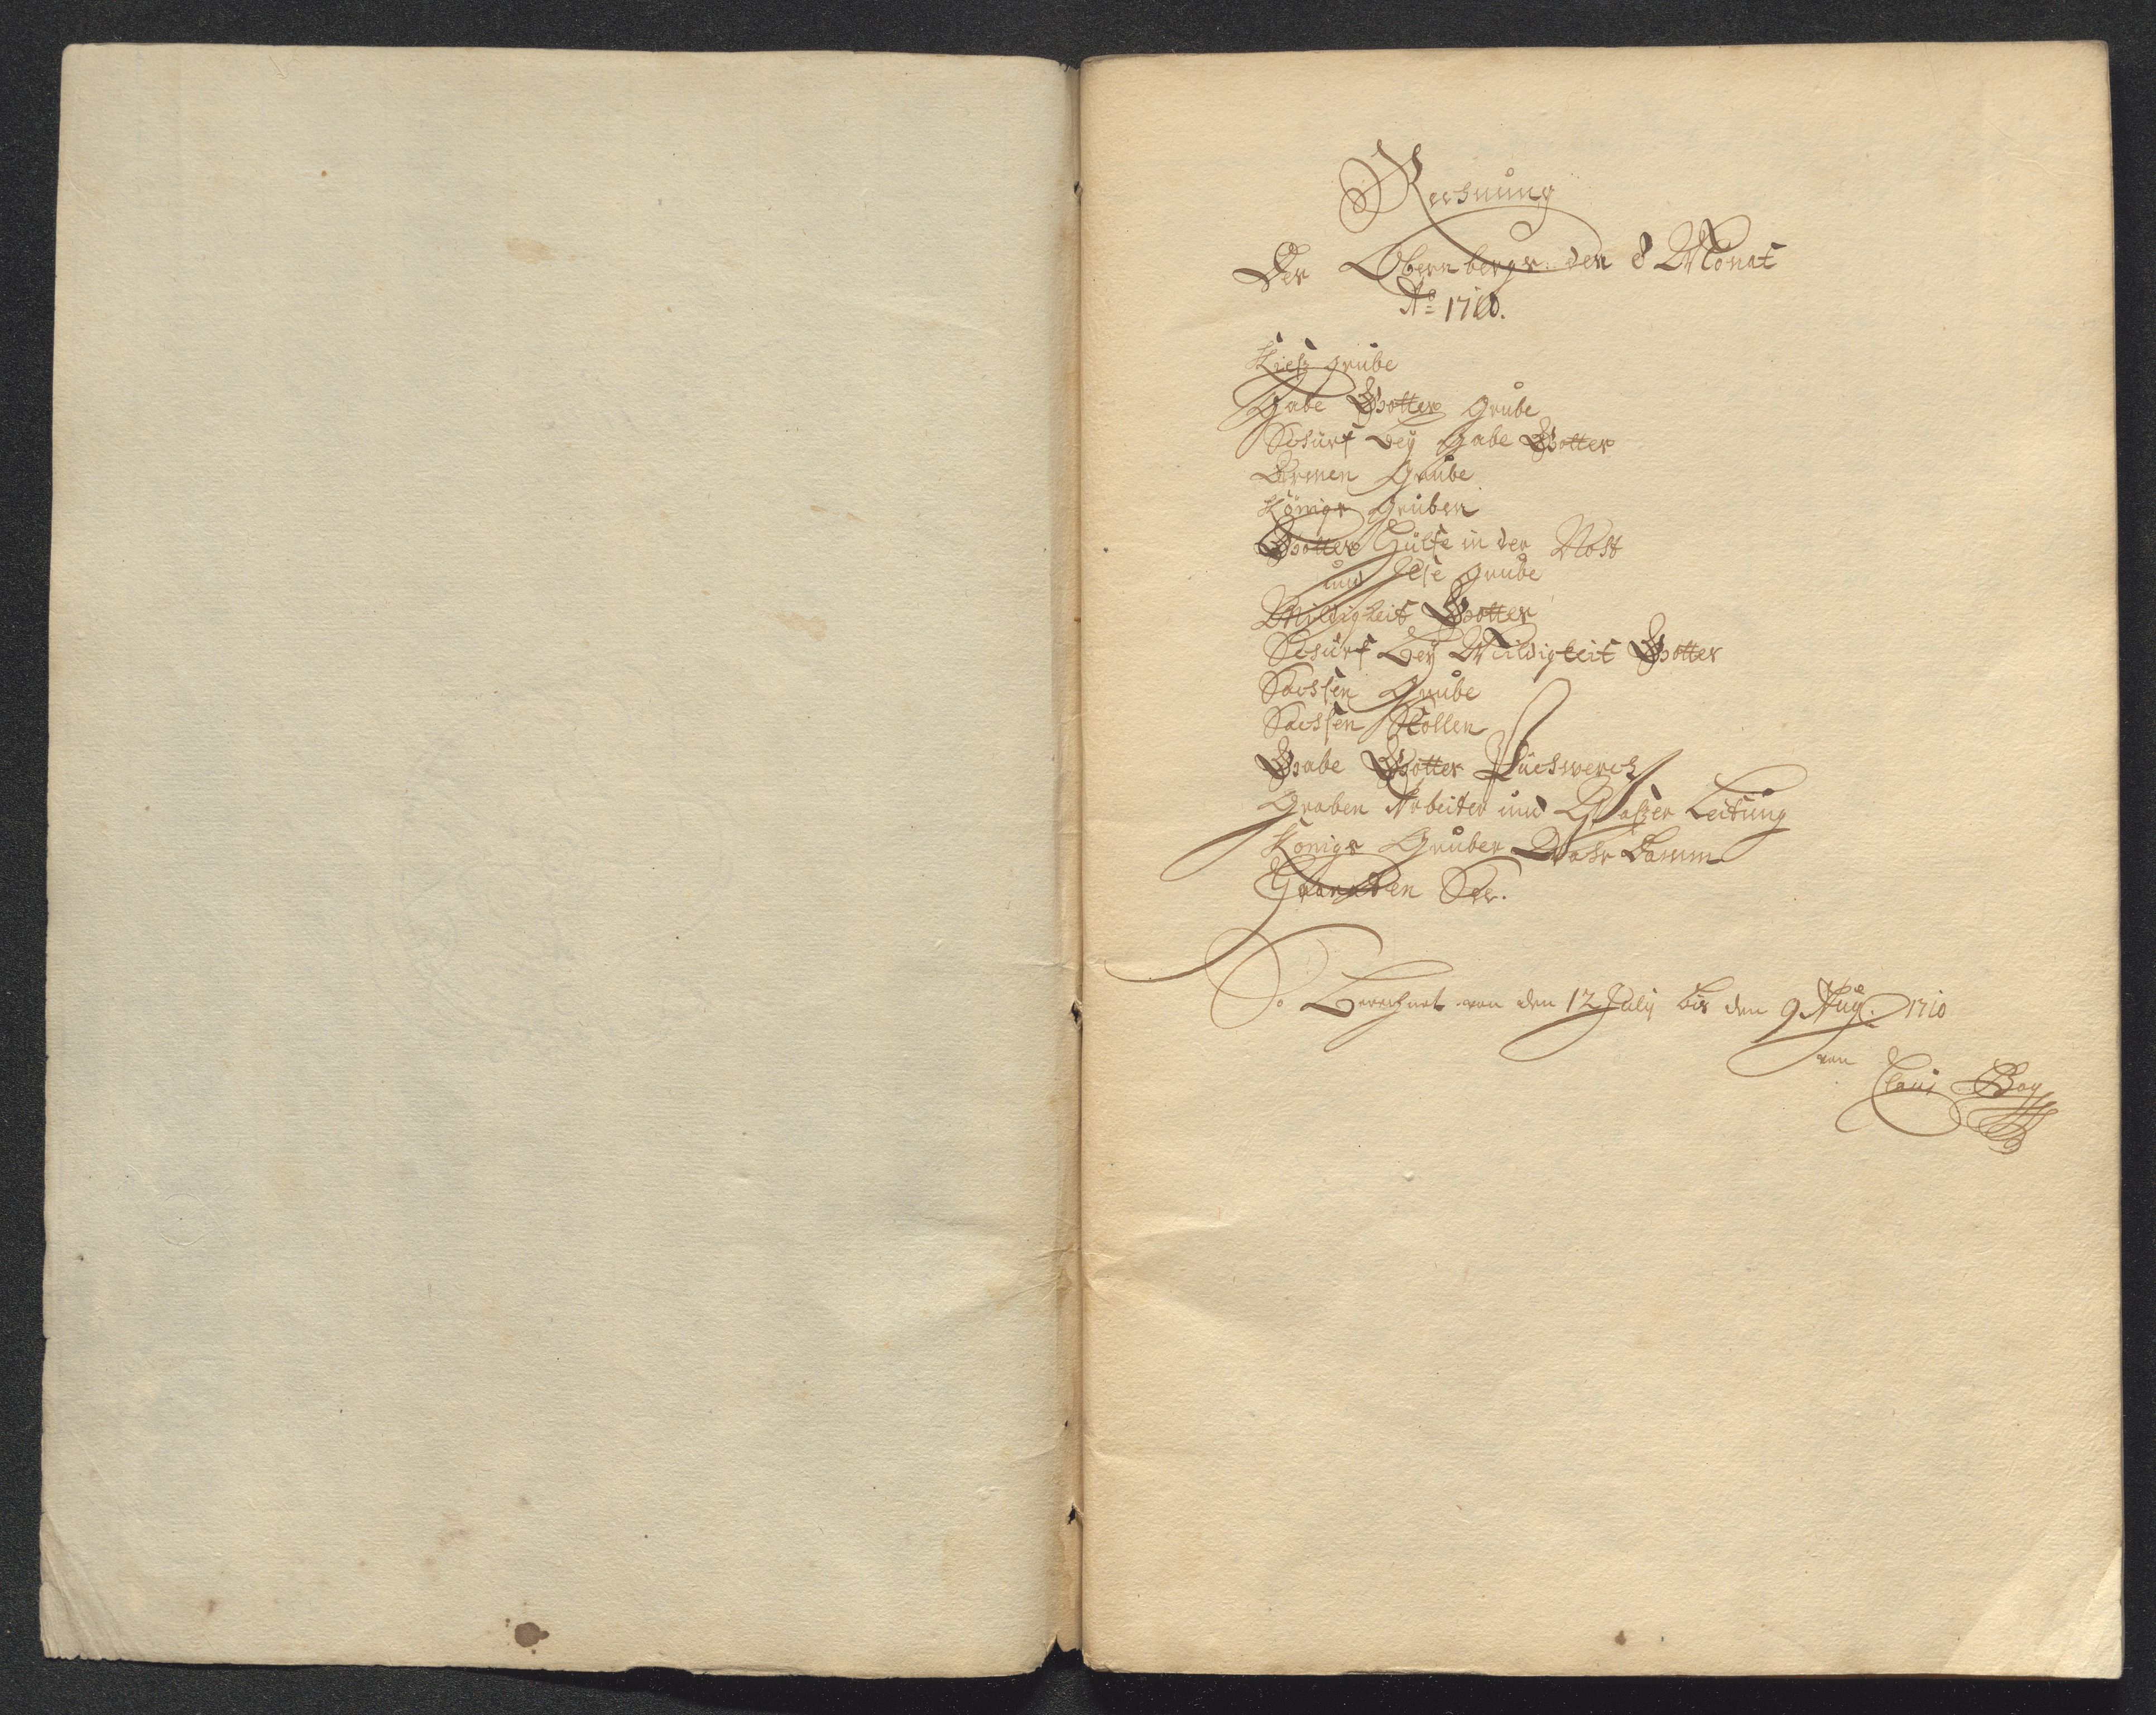 Rechnung
Der Obern bergs. den 8 Monat
Aº 1710.
Kieß grube
Gabe Gottes Grube
Schürf bey Gabe Gottes
Armen Grube
Königs Gruben
Gottes Hülfe in der Noht
und Else grube
Mildigkeit Gottes
Schürf bey Mildigkeit Gottes
Sachsen Grube
Sachsen Stollen
Gabe Gottes Puchwerch
Graben Arbeiter und Waßer Leitung
Königs Gruben Damm
See.
So Berechnet von den 12 July bis den 9 Aug. 1710
von
Claus Bay